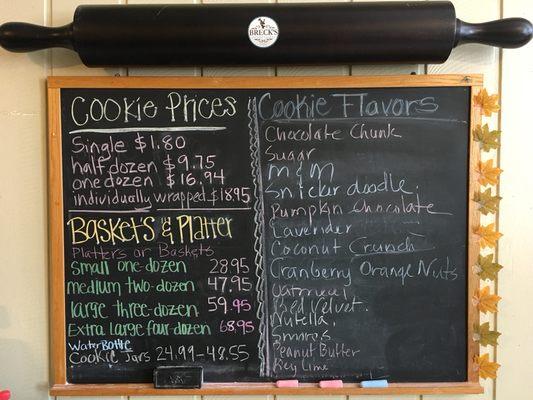 BRECK'S
Cookie Prices
Single $1.80
half dozen $9.75
one dozen $16.94
individually wrapped $18.95
Baskets & Platter
Platters or Baskets
Small one-dozen 28.95
medium two-dozen 47.95
large three-dozen 59.95
Extra large four-dozen 68.95
Water Bottle
Cookie Jars 24.99-48.55
Cookie Flavors
Chocolate Chunk
Sugar
M & M
Snickerdoodle
Pumpkin Chocolate
Lavender
Coconut Crunch
Cranberry Orange Nuts
Oatmeal
Red Velvet
Nutella
Smores
Peanut Butter
Key Lime